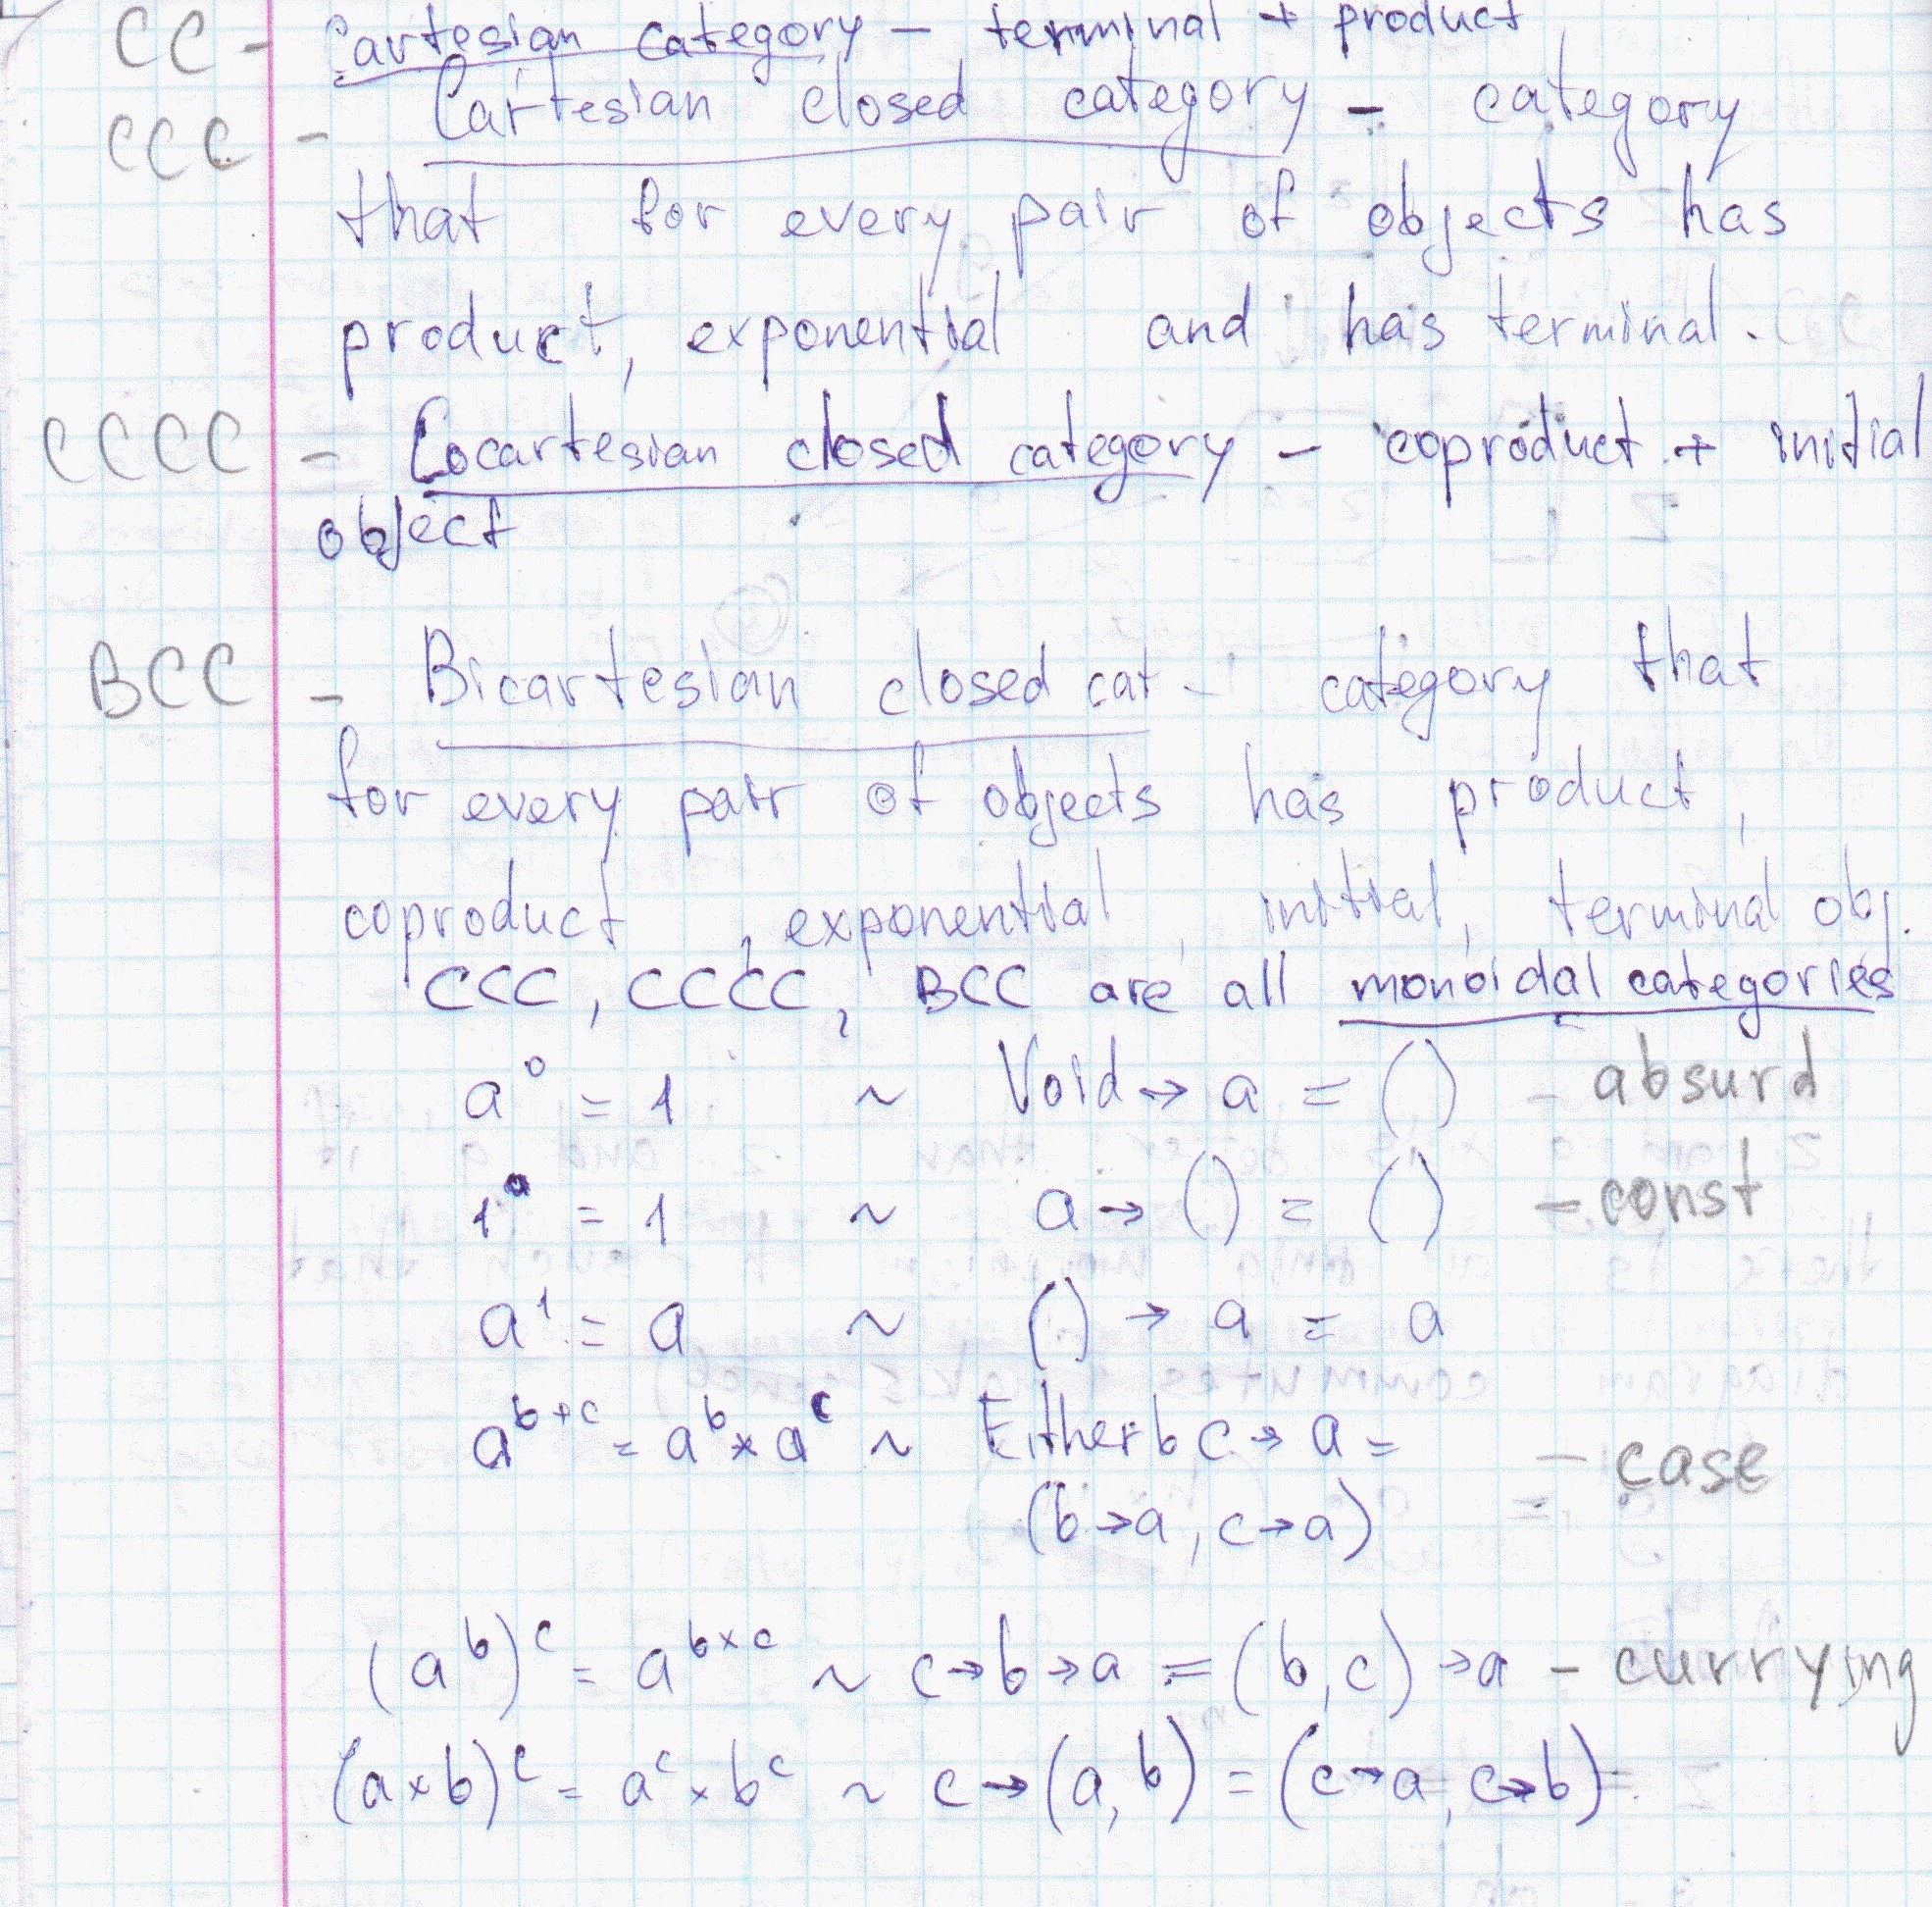 CC - Cartesian category - terminal + product
CCC - Cartesian closed category - category
that for every pair of objects has
product, exponential and has terminal. CCC
CCCC - Cocartesian closed category - coproduct + initial
object
BCC - Bicartesian closed cat - category that
for every pair of objects has product,
coproduct, exponential, initial, terminal obj.
CCC, CCCC, BCC are all monoidal categories
a⁰ = 1 ~ Void → a = () - absurd
1ᵃ = 1 ~ a → () = () - const
a¹ = a ~ () → a = a
aᵇ⁺ᶜ = aᵇ × aᶜ ~ Either b c → a = - case
(b → a, c → a)
(aᵇ)ᶜ = aᵇˣᶜ ~ c → b → a = (b, c) → a - currying
(a × b)ᶜ = aᶜ × bᶜ ~ c → (a, b) = (c → a, c → b)